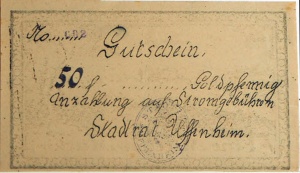 No.
Gutschein.
50 f. Goldpfennig
Anzahlung auf Stromgebühren
Stadtrat Uffenheim.